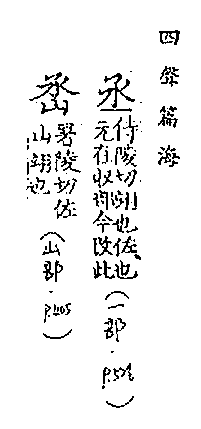 四聲篇海
丞 侍陵切翊也佐也
元在収部今改此（一部．
㞼 署陵切佐
山翊也（山部．